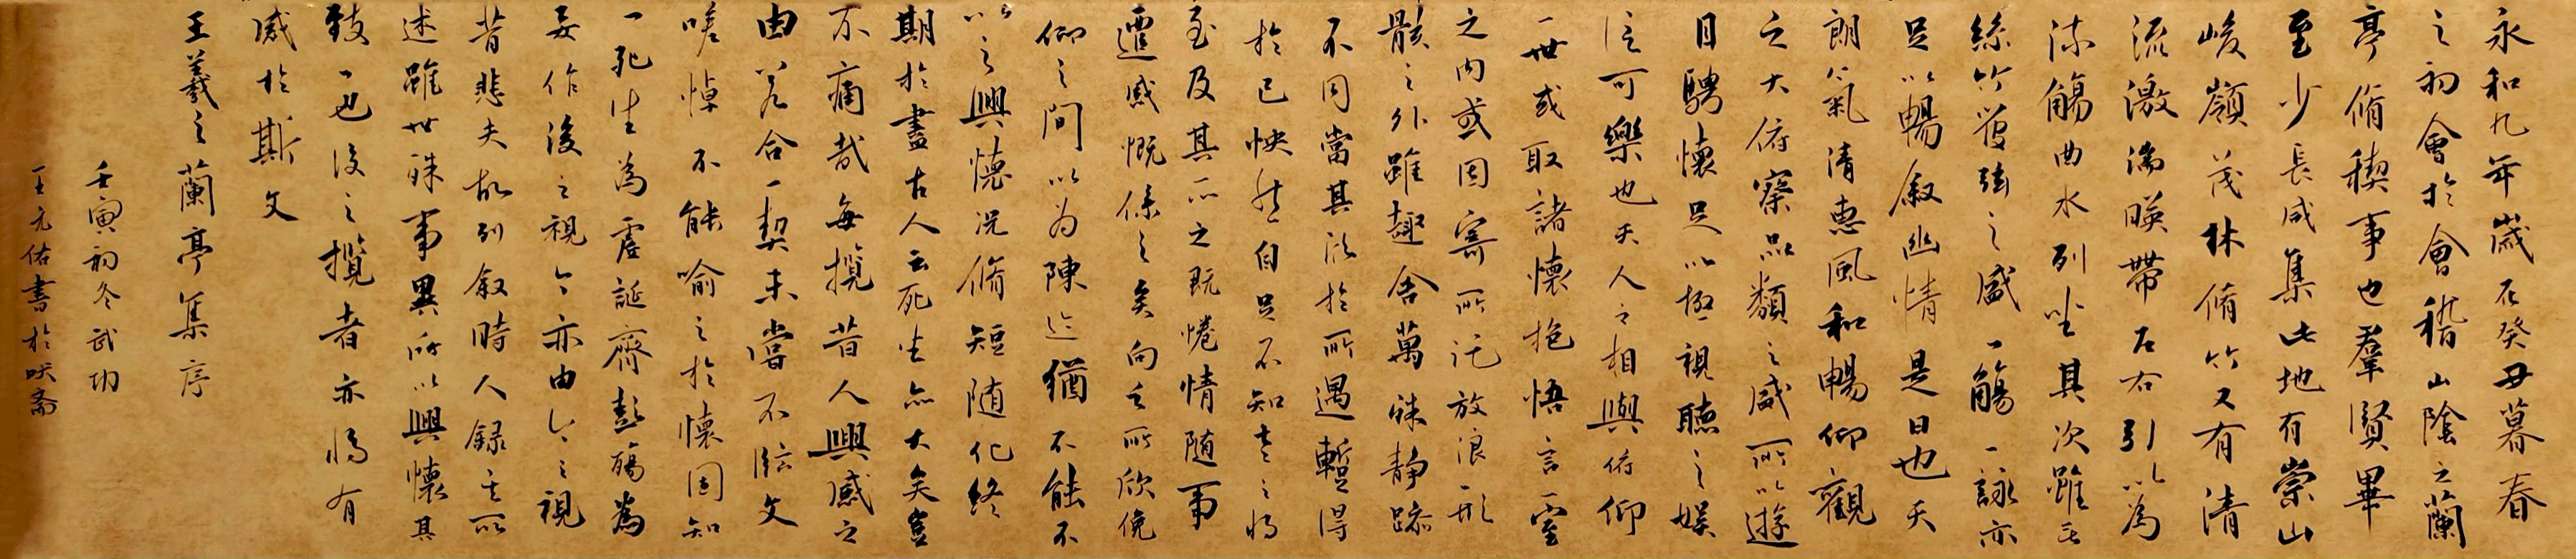 永和九年歲在癸丑暮春
之初會於會稽山陰之蘭
亭脩稧事也羣賢畢
至少長咸集此地有崇山
峻嶺茂林脩竹又有清
流激湍暎帶左右引以為
流觴曲水列坐其次雖無
絲竹管弦之盛一觴一詠亦
足以暢叙幽情是日也天
朗氣清惠風和暢仰觀
之大俯察品類之盛所以遊
目騁懷足以極視聽之娛
信可樂也夫人之相與俯仰
一世或取諸懷抱悟言一室
之内或因寄所託放浪形
骸之外雖趣舍萬殊静躁
不同當其欣於所遇暫得
於己怏然自足不知老之將
至及其所之既惓情随事
遷感慨係之矣向之所欣俛
仰之間以为陳迹猶不能不
以之興懷況脩短随化終
期於盡古人云死生亦大矣豈
不痛哉每攬昔人興感之
由若合一契未嘗不臨文
嗟悼不能喻之於懷固知
一死生為虛誕齊彭殤為
妄作後之視今亦由今之視
昔悲夫故列叙時人録其所
述雖世殊事異所以興懷其
致一也後之攬者亦將有
感於斯文
王羲之蘭亭集序
壬寅初冬武功
王元佑書於咲斋